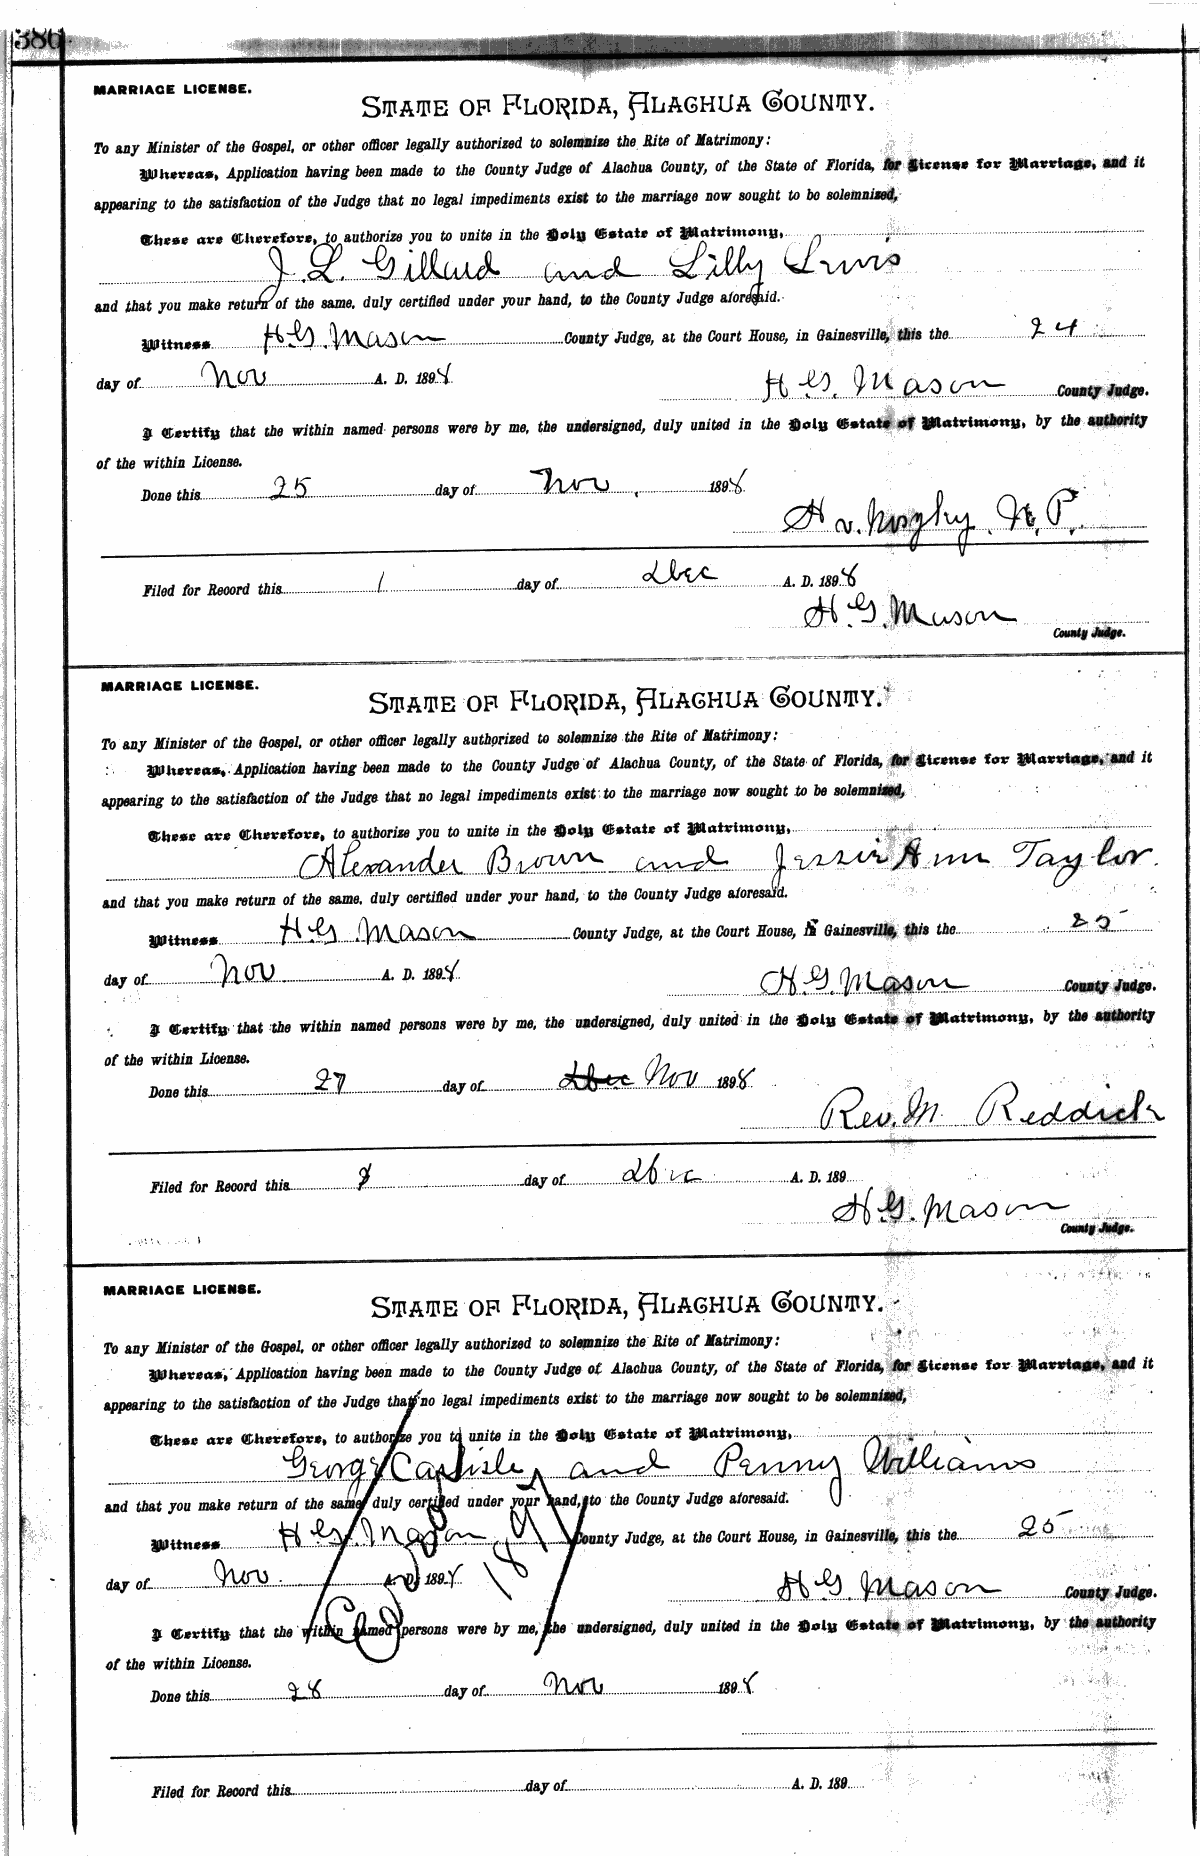 386
MARRIAGE LICENSE.
STATE OF FLORIDA, ALACHUA COUNTY.
To any Minister of the Gospel, or other officer legally authorized to solemnize the Rite of Matrimony:
Whereas, Application having been made to the County Judge of Alachua County, of the State of Florida, for License for Marriage, and it
appearing to the satisfaction of the Judge that no legal impediments exist to the marriage now sought to be solemnized,
These are Therefore, to authorize you to unite in the Holy Estate of Matrimony,
J. L. Gillard and Lilly Lewis
and that you make return of the same, duly certified under your hand, to the County Judge aforesaid.
Witness H.G. Mason County Judge, at the Court House, in Gainesville, this the 24
day of Nov A. D. 1898
H.G. Mason County Judge.
I Certify that the within named persons were by me, the undersigned, duly united in the Holy Estate of Matrimony, by the authority
of the within License.
Done this 25 day of Nov. 1898
H v. N. P.
Filed for Record this 1 day of Dec A. D. 1898
H.G. Mason
County Judge.
MARRIAGE LICENSE.
STATE OF FLORIDA, ALACHUA COUNTY.
To any Minister of the Gospel, or other officer legally authorized to solemnize the Rite of Matrimony:
Whereas, Application having been made to the County Judge of Alachua County, of the State of Florida, for License for Marriage, and it
appearing to the satisfaction of the Judge that no legal impediments exist to the marriage now sought to be solemnized,
These are Therefore, to authorize you to unite in the Holy Estate of Matrimony,
Alexander Brown and Jessie Ann Taylor.
and that you make return of the same, duly certified under your hand, to the County Judge aforesaid.
Witness H.G. Mason County Judge, at the Court House, in Gainesville, this the 25
day of Nov. A. D. 1898
H.G. Mason County Judge.
I Certify that the within named persons were by me, the undersigned, duly united in the Holy Estate of Matrimony, by the authority
of the within License.
Done this 27 day of Dec Nov 1898
Rev. M. Reddick
Filed for Record this day of Dec A. D. 189
H.G. Mason
County Judge.
MARRIAGE LICENSE.
STATE OF FLORIDA, ALACHUA COUNTY.
To any Minister of the Gospel, or other officer legally authorized to solemnize the Rite of Matrimony:
Whereas, Application having been made to the County Judge of Alachua County, of the State of Florida, for License for Marriage, and it
appearing to the satisfaction of the Judge that no legal impediments exist to the marriage now sought to be solemnized,
These are Therefore, to authorize you to unite in the Holy Estate of Matrimony,
George Carlisle and Penny Williams
and that you make return of the same, duly certified under your hand, to the County Judge aforesaid.
Witness H.G. Mason County Judge, at the Court House, in Gainesville, this the 25
day of Nov. A. D. 1898
H.G. Mason County Judge.
I Certify that the within named persons were by me, the undersigned, duly united in the Holy Estate of Matrimony, by the authority
of the within License.
Done this 28 day of Nov 1898
Filed for Record this day of A. D. 189